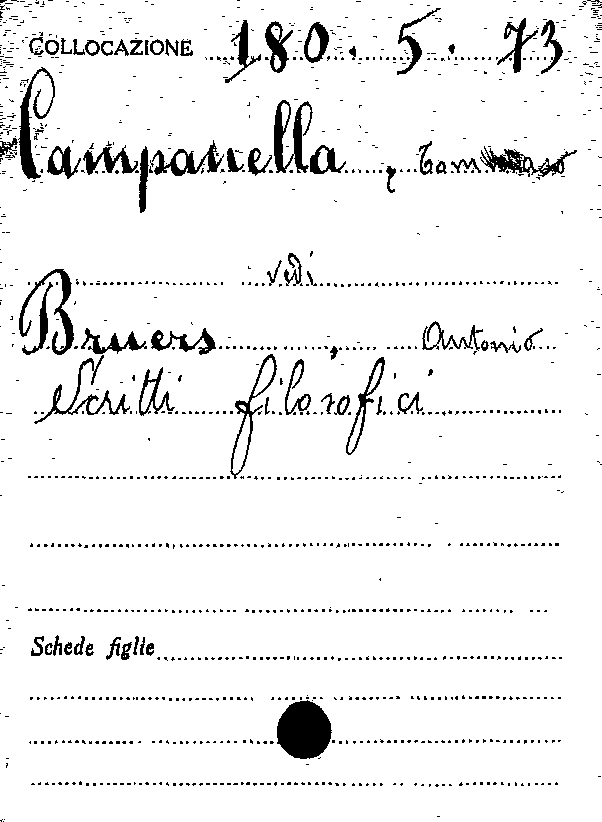 COLLOCAZIONE 180. 5. 73
Campanella, Tommaso
vedi
Bruers, Antonio
Scritti filosofici
Schede figlie